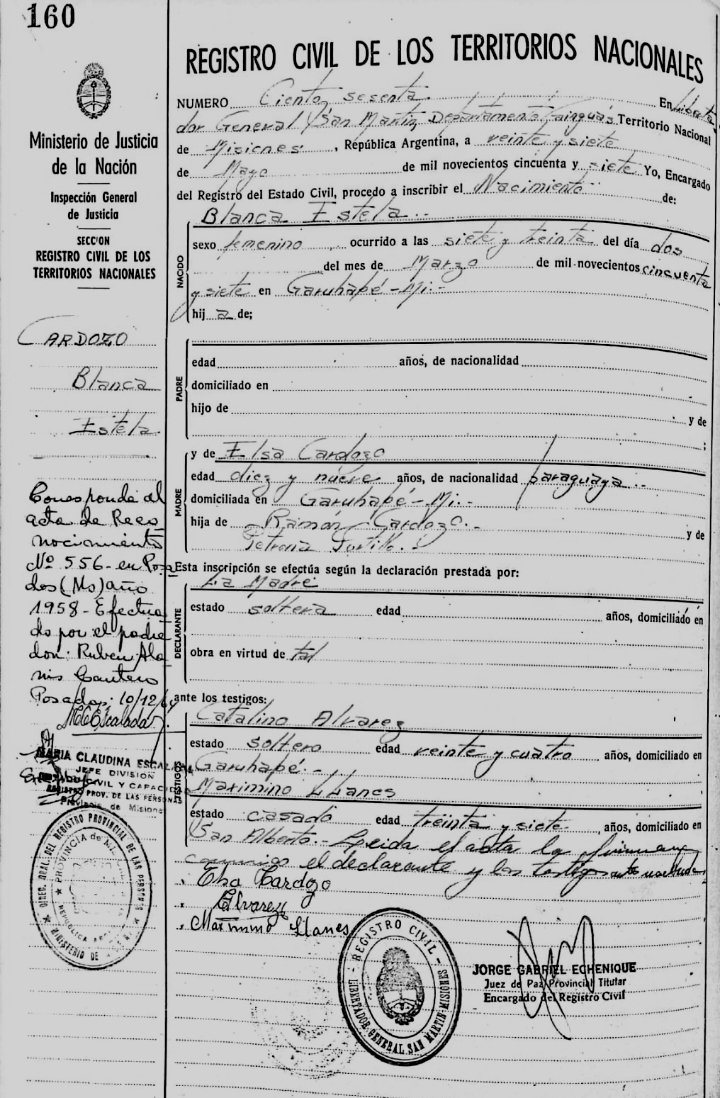 160
Ministerio de Justicia
de la Nación
Inspección General
de Justicia
SECCION
REGISTRO CIVIL DE LOS
TERRITORIOS NACIONALES
CARDOZO
Blanca
Estela
Corresponde al
acta de Reco
nocimiento
Nº 556- en Posa
das (Ms) año
1958- Efectua
do por el padre
don: Ruben Ala
nis Cantero
Posadas: 10/12/
MCEscalada
MARIA CLAUDINA ESCALADA
JEFE DIVISION
CIVIL Y CAPACIDAD
REGISTRO PROV. DE LAS PERSONAS
Provincia de Misiones
DIREC. GRAL. DEL REGISTRO PROVINCIAL DE LAS PERSONAS
PROVINCIA DE
REPUBLICA
MINISTERIO DE
REGISTRO CIVIL DE LOS TERRITORIOS NACIONALES
NUMERO Ciento sesenta En Liberta
dor General San Martín Departamento Cainguás Territorio Nacional
de Misiones, República Argentina, a veinte y siete
de Mayo de mil novecientos cincuenta y siete Yo, Encargado
del Registro del Estado Civil, procedo a inscribir el Nacimiento de:
Blanca Estela
NACIDO
sexo femenino ocurrido a las siete y treinta del día dos
del mes de Marzo de mil novecientos cincuenta
y siete en Garuhapé-Mi.-
hij a de;
PADRE
edad años, de nacionalidad
domiciliado en
hijo de y de
MADRE
y de Elsa Cardozo
edad diez y nueve años, de nacionalidad paraguaya
domiciliada en Garuhapé-Mi.-
hija de Ramon Cardozo.- y de
Petrona Portillo.-
Esta inscripción se efectúa según la declaración prestada por:
DECLARANTE
La Madre
estado soltera edad años, domiciliado en
obra en virtud de tal
ante los testigos:
TESTIGOS
Catalino Alvarez
estado soltero edad veinte y cuatro años, domiciliado en
Garuhapé.-
Maximino Llanes
estado casado edad treinta y siete años, domiciliado en
San Alberto.- Leida el acta la firman
conmigo el declarante y los testigos
Elsa Cardozo
Alvarez
Maximino Llanes
REGISTRO CIVIL
LIBERTADOR GENERAL SAN MARTIN-MISIONES
JORGE GABRIEL ECHENIQUE
Juez de Paz Provincial Titular
Encargado del Registro Civil